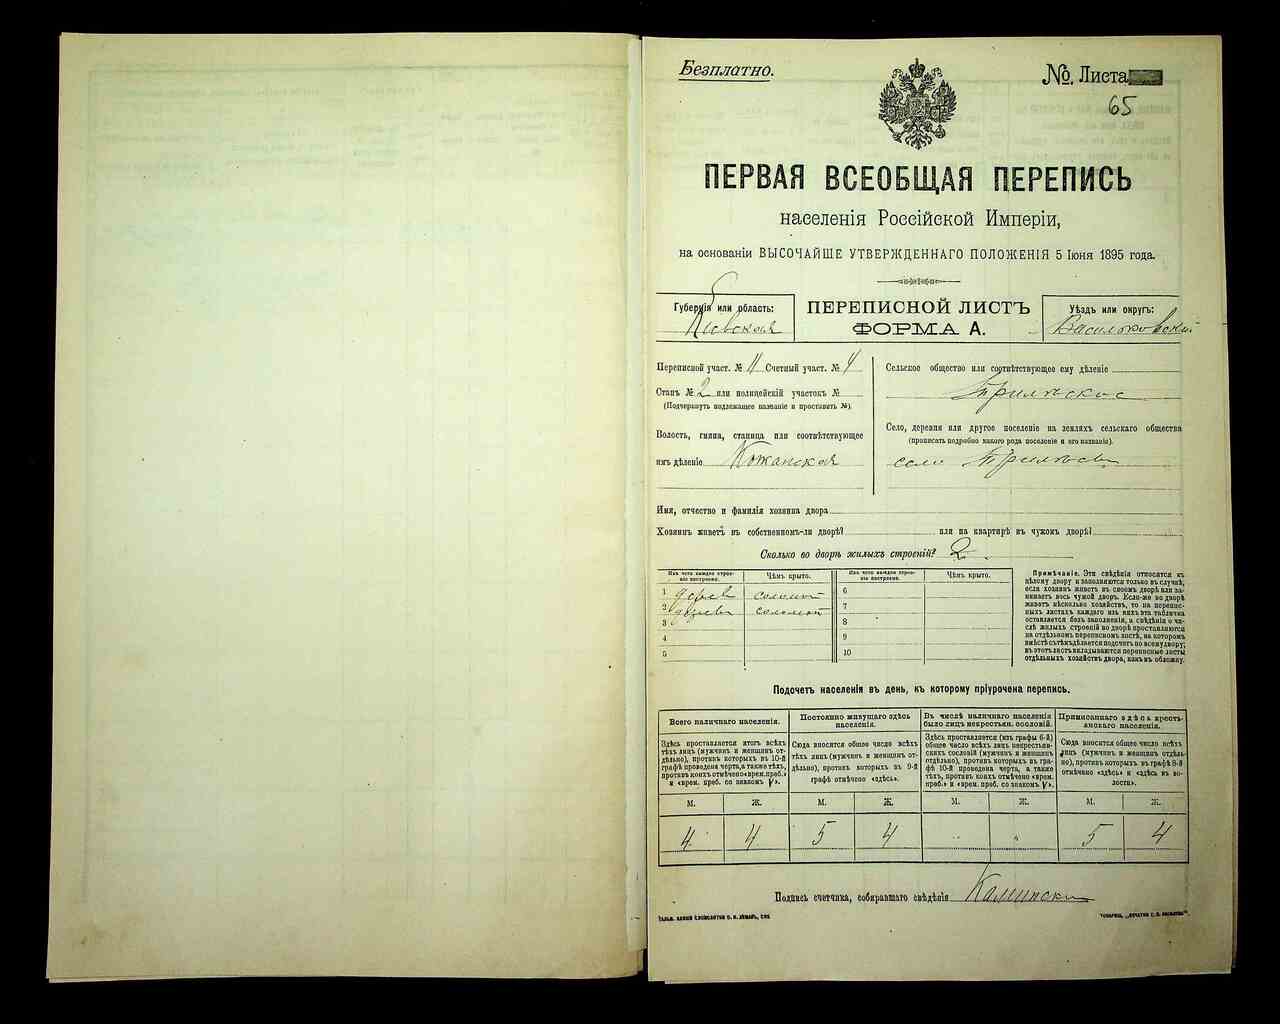 Безплатно.
№. Листа
65
ПЕРВАЯ ВСЕОБЩАЯ ПЕРЕПИСЬ
населенія Россійской Имперіи,
на основаніи ВЫСОЧАЙШЕ УТВЕРЖДЕННАГО ПОЛОЖЕНІЯ 5 Іюня 1895 года.
Губернія или область:
Кіевская
ПЕРЕПИСНОЙ ЛИСТЪ
ФОРМА А.
Уѣздъ или округъ:
Васильковскій
Переписной участ. № 11 Счетный участ. № 4
Станъ № 2 или полицейскій участокъ №
(Подчеркнуть подлежащее названіе и проставить №).
Волость, гмина, станица или соотвѣтствующее
имъ дѣленіе Кожанская
Сельское общество или соотвѣтствующее ему дѣленіе
Трилѣское
Село, деревня или другое поселеніе на земляхъ сельскаго общества
(прописать подробно какого рода поселеніе и его названіе).
село Трилѣсы
Имя, отчество и фамилія хозяина двора
Хозяинъ живетъ въ собственномъ-ли дворѣ? или на квартирѣ въ чужомъ дворѣ?
Сколько во дворѣ жилыхъ строеній? 2
Изъ чего каждое строе-
ніе построено.
Чѣмъ крыто.
Изъ чего каждое строе-
ніе построено.
Чѣмъ крыто.
1 дерев соломой 6
2 дерев соломой 7
3 8
4 9
5 10
Примѣчаніе. Эти свѣдѣнія относятся къ
цѣлому двору и заполняются только въ случаѣ,
если хозяинъ живетъ въ своемъ дворѣ или за-
нимаетъ весь чужой дворъ. Если-же во дворѣ
живетъ нѣсколько хозяйствъ, то на перепис-
ныхъ листахъ каждаго изъ нихъ эта табличка
оставляется безъ заполненія, а свѣдѣнія о чи-
слѣ жилыхъ строеній во дворѣ проставляются
на отдѣльномъ переписномъ листѣ, на которомъ
вмѣстѣ съ тѣмъ дѣлается подсчетъ по всему двору;
въ этотъ листъ вкладываются переписные листы
отдѣльныхъ хозяйствъ двора, какъ въ обложку.
Подсчетъ населенія въ день, къ которому пріурочена перепись.
Всего наличнаго населенія.
Здѣсь проставляется итогъ всѣхъ
тѣхъ лицъ (мужчинъ и женщинъ от-
дѣльно), противъ которыхъ въ 10-й
графѣ проведена черта, а также тѣхъ,
противъ коихъ отмѣчено «врем. преб.»
и «врем. преб. со знакомъ V».
Постоянно живущаго здѣсь
населенія.
Сюда вносится общее число всѣхъ
тѣхъ лицъ (мужчинъ и женщинъ от-
дѣльно), противъ которыхъ въ 9-й
графѣ отмѣчено «здѣсь».
Въ числѣ наличнаго населенія
было лицъ некрестьян. сословій.
Здѣсь проставляется (изъ графы 6-й)
общее число всѣхъ лицъ некрестьян-
скихъ сословій (мужчинъ и женщинъ
отдѣльно), противъ которыхъ въ гра-
фѣ 10-й проведена черта, а также
тѣхъ, противъ коихъ отмѣчено «врем.
преб.» и «врем. преб. со знакомъ V».
Приписаннаго здѣсь кресть-
янскаго населенія.
Сюда вносится общее число всѣхъ
лицъ (мужчинъ и женщинъ отдѣль-
но), противъ которыхъ въ графѣ 8-й
отмѣчено «здѣсь» и «здѣсь въ во-
лости».
М. Ж. М. Ж. М. Ж. М. Ж.
4 4 5 4 " " 5 4
Подпись счетчика, собиравшаго свѣдѣнія Каминскі